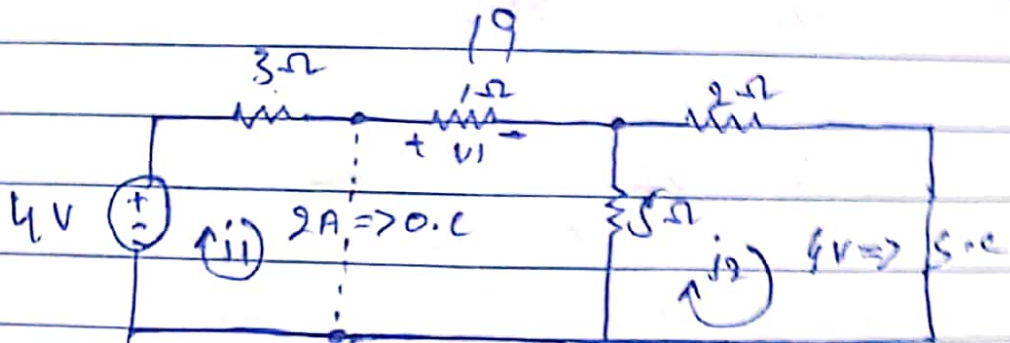 19
3Ω 1Ω 2Ω
+ V1 -
4V + - i1 2A => O.C 5Ω i2 4V => S.C